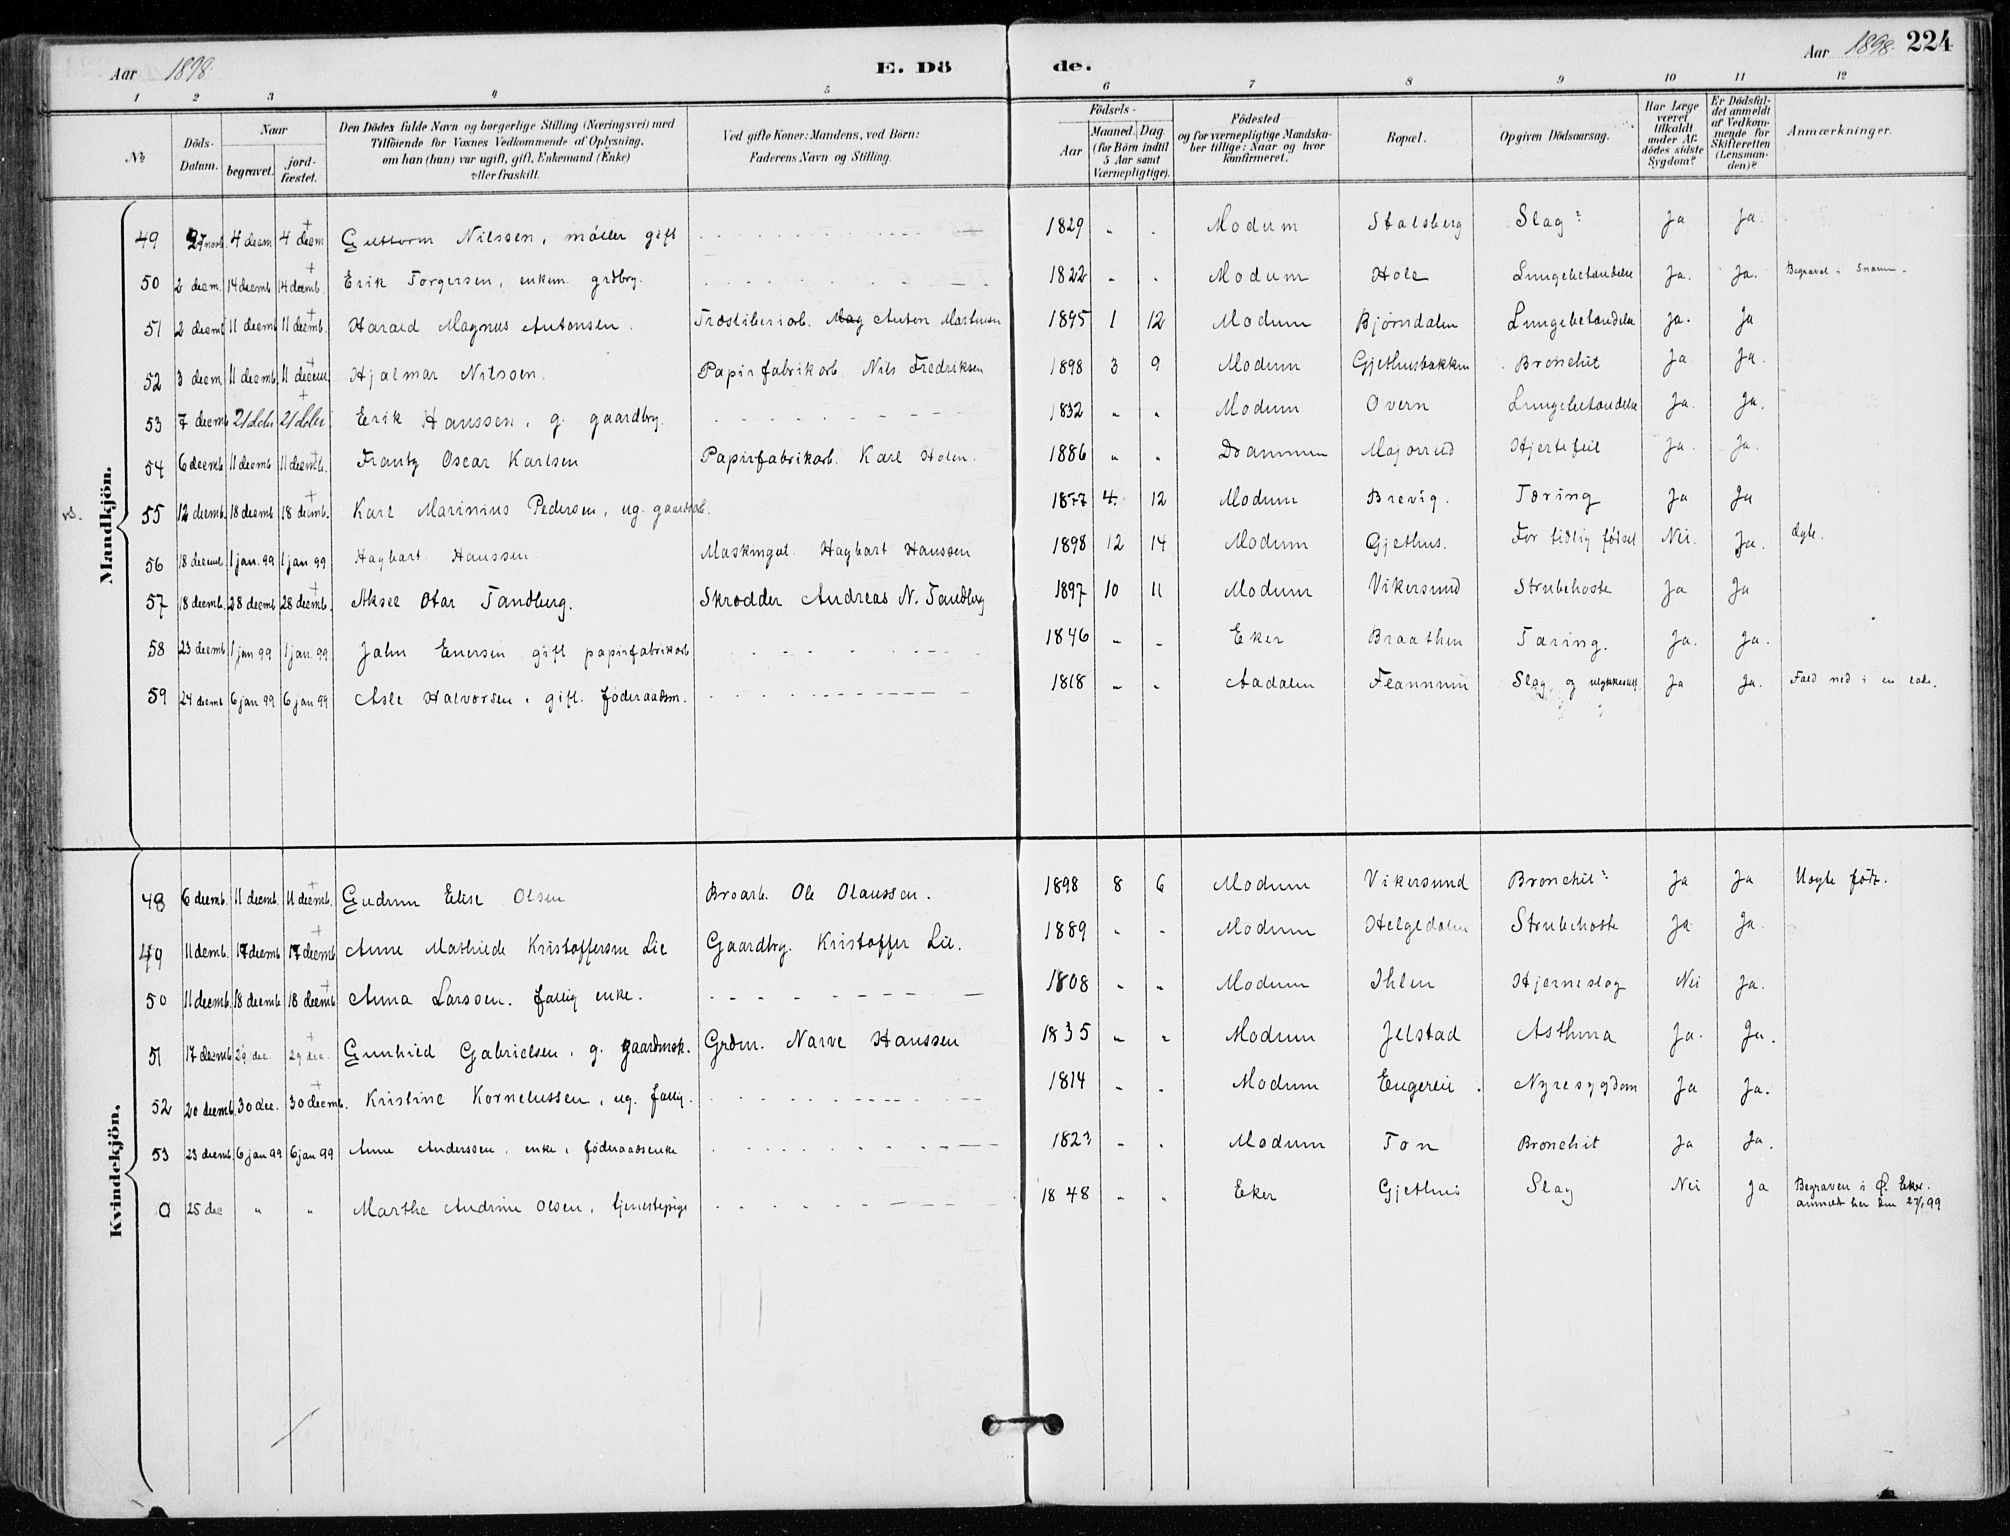 Aar 1898. E. Dö
de. Aar 1898. 224
1 2 3 4 5 6 7 8 9 10 11 12
№
Döds-
Datum.
Naar
begravet.
jord-
fæstet.
Den Dödes fulde Navn og borgerlige Stilling (Næringsvei) med
Tilföiende for Voxnes Vedkommende af Oplysning,
om han (hun) var ugift, gift, Enkemand (Enke)
eller fraskilt.
Ved gifte Koner: Mandens, ved Börn:
Faderens Navn og Stilling.
Födsels-
Aar
Maaned. Dag.
(for Börn indtil
5 Aar samt
Værnepligtige).
Födested
og for værnepligtige Mandska-
ber tillige: Naar og hvor
konfirmeret.
Bopæl.
Opgiven Dödsaarsag.
Har Læge
været
tilkaldt
under Af-
dödes sidste
Sygdom?
Er Dödsfal-
det anmeldt
af Vedkom-
mende for
Skifteretten
(Lensman-
den)?
Anmærkninger.
Mandkjön.
49 27 novb. 4 decm 4 decm Guttorm Nilssen, møller gift 1829 " " Modum Stalsberg Slag? Ja Ja.
50 2 decm. 14 decemb 14 decemb. Erik Torgersen, enkem. grdbrg. 1822 " " Modum Hole Lungebetændelse Ja. Ja. Begravet i Snarum.
51 2 decemb 11 decemb 11 decemb. Harald Magnus Antonsen. Træsliberiarb. Anton Martinsen 1895 1 12 Modum Bjørndalen Lungebetændelse Ja. Ja
52 3 decm. 11 decemb. 11 decem. Hjalmar Nilssen. Papirfabrikarb. Nils Fredriksen 1898 3 9 Modum Gjethusbakken Bronchit Ja Ja.
53 7 decemb 21 dcbr 21 dcbr Erik Hanssen, g. gaardbrg. 1832 " " Modum Overn Lungebetændelse Ja. Ja.
54 6 decemb 11 decemb 11 decemb. Frantz Oscar Karlsen Papirfabrikarb. Karl Holen. 1886 " " Drammen Majorrud Hjertefeil Ja. Ja.
55 12 decemb. 18 decemb 18 decemb. Karl Marinius Pedersen, ug. gaardarb. 1877 4. 12 Modum Brevig. Tæring Ja Ja
56 18 decemb. 1 jan. 99 1 jan 99 Hagbart Hanssen Maskingut. Hagbart Hanssen 1898 12 14 Modum Gjethus. For tidlig fødsel Nei. Ja. Ægte.
57 18 decemb. 28 decemb 28 decemb. Aksel Otar Tandberg. Skrædder Andreas N. Tandberg 1897 10 11 Modum Vikersund Strubehoste Ja Ja
58 23 decemb. 1 jan 99 1 jan. 99. John Enersen gift papirfabrikarb 1846 " " Eker Braathen Tæring. Ja. Ja.
59 24 decemb 6 jan 99 6 jan 99 Asle Halvorsen, gift. føderaadsm. 1818 " " Aadalen Flannum Slag, og ulykkestilf. Ja Ja. Fald ned i en lade.
Kvindekjön.
48 6 decemb. 11 decemb. 11 decemb. Gudrun Elise Olsen Broarb. Ole Olaussen. 1898 8 6 Modum Vikersund Bronchit? Ja Ja Uægte født.
49 11 decemb. 17 decemb 17 decemb Anne Mathilde Kristoffersen Lie Gaardbrg. Kristoffer Lie. 1889 " " Modum Helgedalen Strubehoste Ja Ja.
50 11 decemb. 18 decemb 18 decemb Anna Larssen. fattig enke. 1808 " " Modum Ihlen Hjerneslag Nei Ja.
51 17 decemb 29 dec 29 dec. Gunhild Gabrielsen, g. gaardmsk. Grdm. Narve Hanssen 1835 " " Modum Jelstad Asthma Ja. Ja.
52 20 decemb. 30 dec. 30 decemb. Kristine Korneliussen, ug. fattig. 1814 " " Modum Engerei. Nyresygdom Ja Ja.
53 23 decemb. 6 jan 99 6 jan 99 Anne Anderssen, enke, føderaadsenke 1823 " " Modum Ton Bronchit Ja Ja.
0 25 dec " " Marthe Andrine Olsen, tjenestepige 1848 " " Eker Gjethus Slag Nei Ja Begraven i Ø. Eker.
anmeldt her den 27/1 99